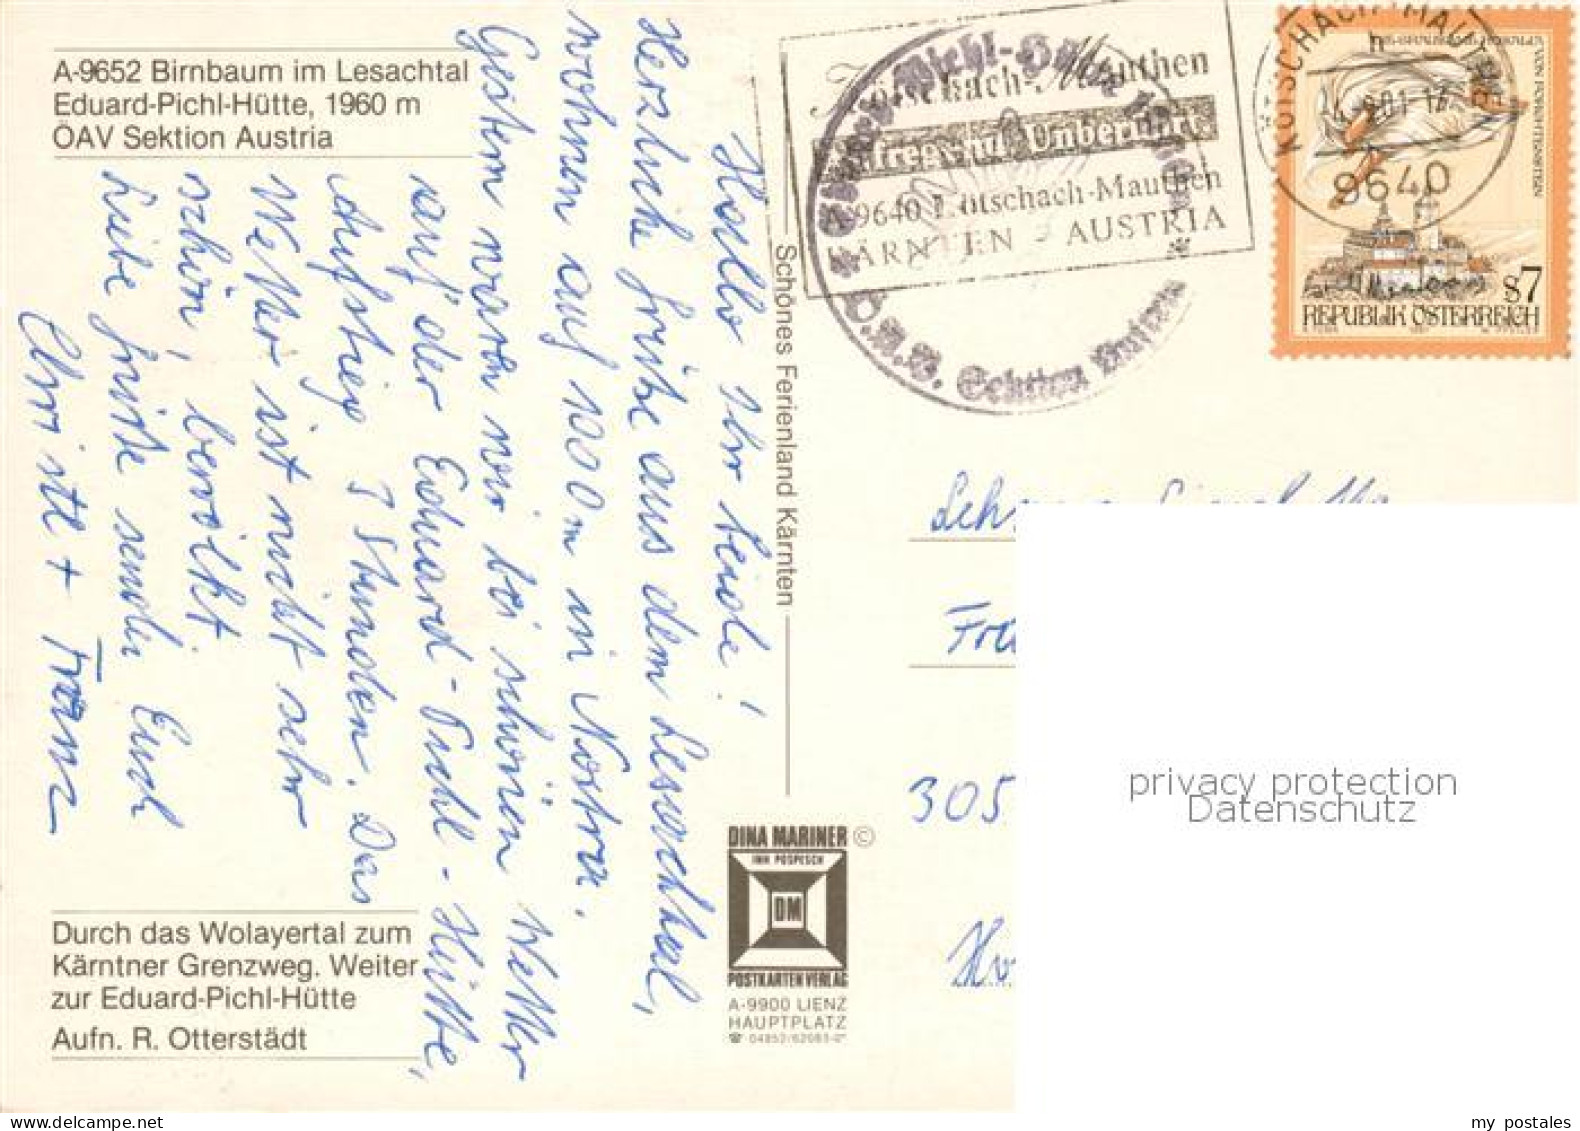 A-9652 Birnbaum im Lesachtal
Eduard-Pichl-Hütte, 1960 m
ÖAV Sektion Austria
Hallo ihr beide!
Herzliche Grüße aus dem Lesachtal,
wohnen auf 1000m in Nostra.
Gestern waren wir bei schönen Wetter
auf der Eduard-Pichl-Hütte,
Aufstieg 3 Stunden. Das
Wetter ist nicht sehr
schön, bewölkt.
Liebe Grüße senden Euch
Christl + Franz
Durch das Wolayertal zum
Kärntner Grenzweg. Weiter
zur Eduard-Pichl-Hütte
Aufn. R. Otterstädt
Schönes Ferienland Kärnten
DINA MARINER ©
INH POSPESCH
DM
POSTKARTENVERLAG
A-9900 LIENZ
HAUPTPLATZ
☎ 04852/62083-0*
Kötschach-Mauthen
Aufregend Unberührt
A-9640 Kötschach-Mauthen
KÄRNTEN - AUSTRIA
Ö.A.V. Sektion Austria
KÖTSCHACH-MAUTHEN
9640
S7
REPUBLIK ÖSTERREICH
305
privacy protection
Datenschutz
my postales